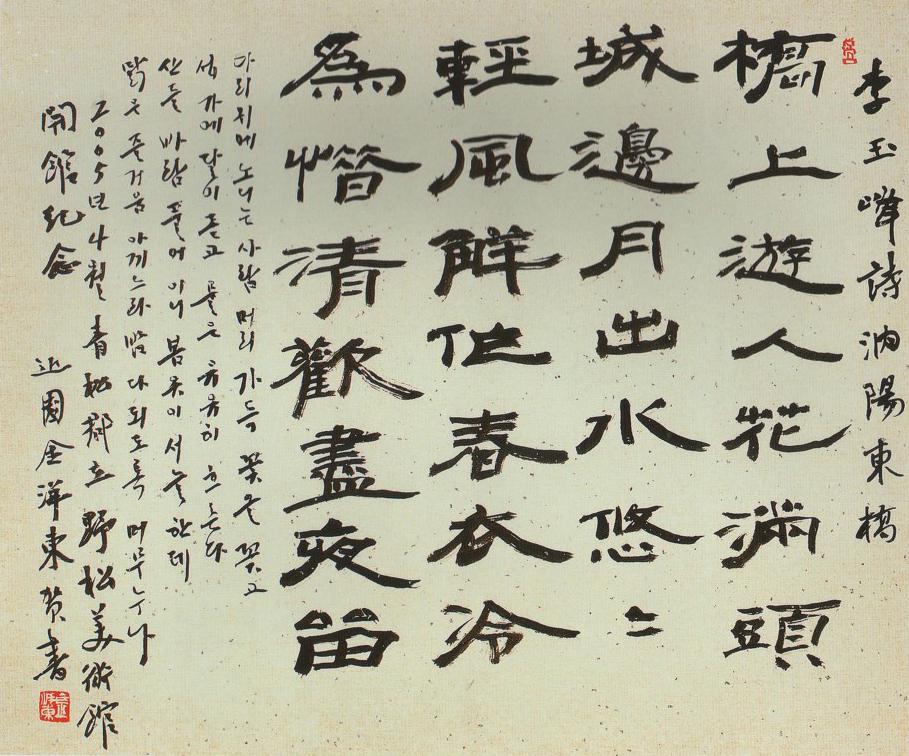 李玉峰詩 汭陽東橋
橋上遊人花滿頭
城邊月出水悠々
輕風解作春衣冷
為惜清歡盡夜留
다리 위에 노니는 사람 머리 가득 꽃을 꽂고
성 가에 달이 돋고 물은 유유히 흐른다
산들바람 풀어 이니 봄옷이 서늘한데
맑은 즐거움 아끼느라 밤 다 되도록 머무누나
2005년 4월 青松郡立 野松美術館
開館紀念 近園金洋東 書